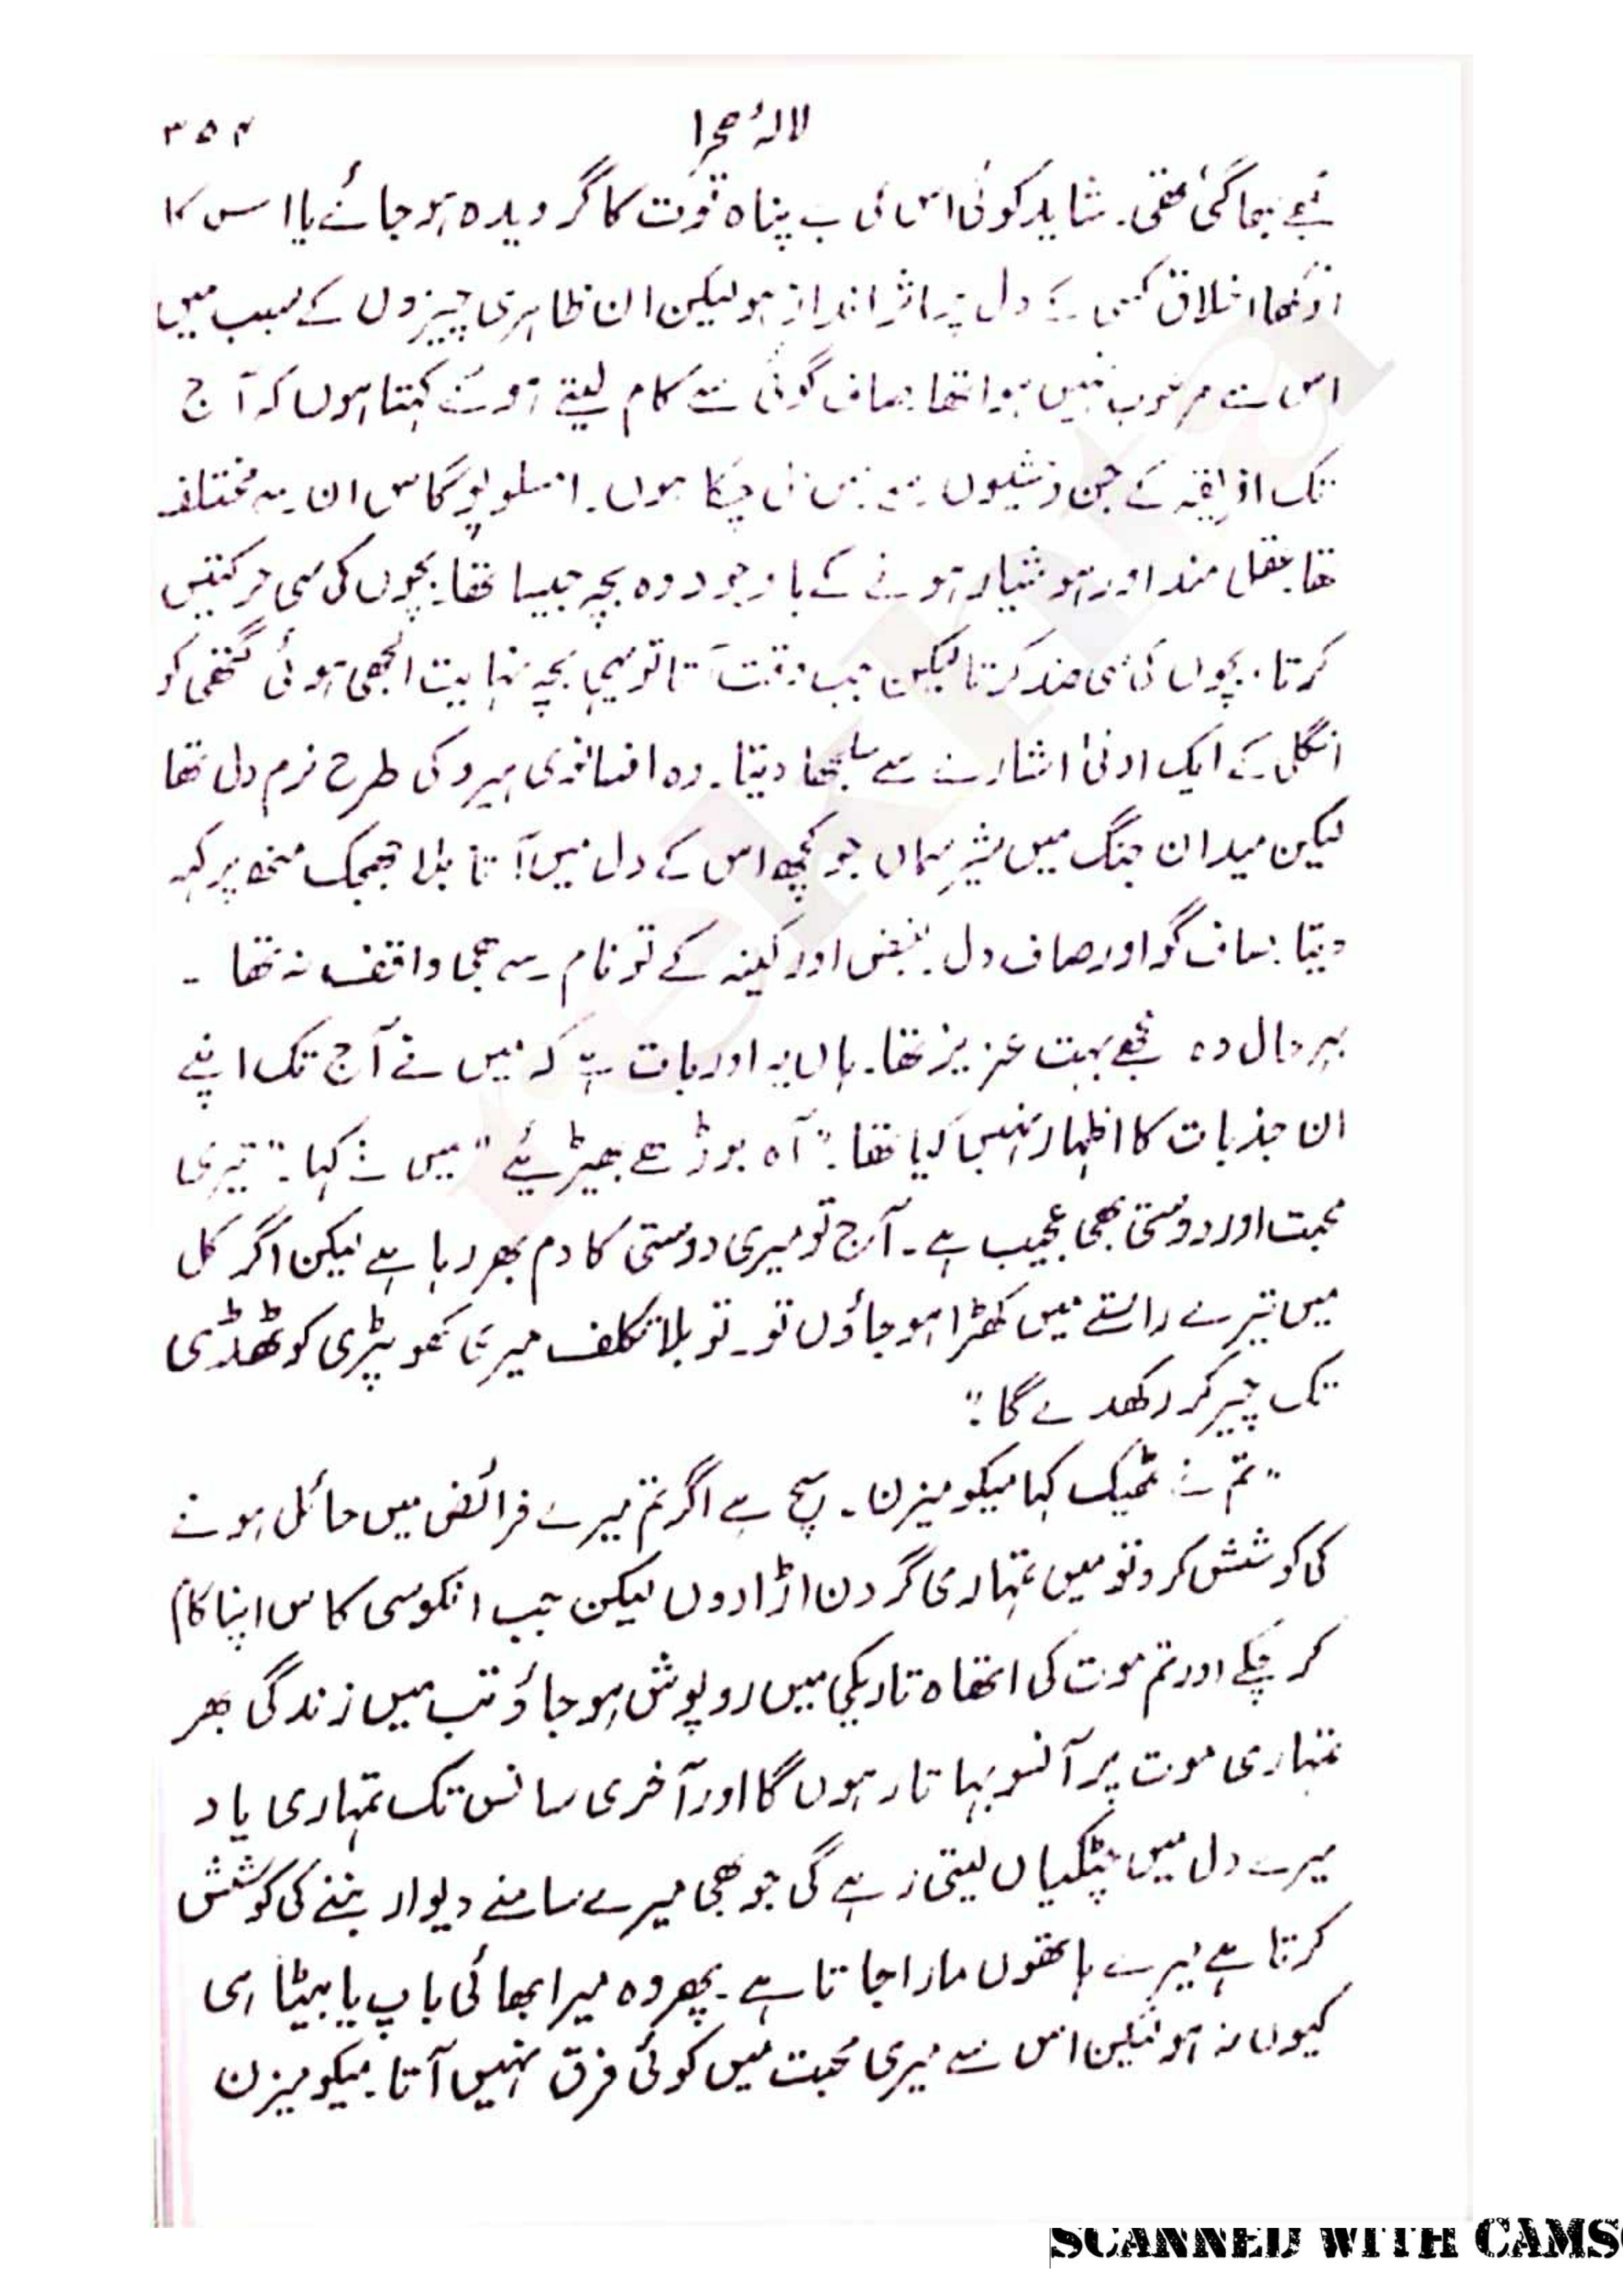 لالۂ صحرا ۳۵۴
مجھے بھا گئی تھی۔ شاید کوئی اس کی بے پناہ قوت کا گرویدہ ہو جائے یا اس کا
انوکھا اخلاق کسی کے دل پر اثر انداز ہو لیکن ان ظاہری چیزوں کے سبب میں
اس سے مرعوب نہیں ہوا تھا صاف گوئی سے کام لیتے ہوئے کہتا ہوں کہ آج
تک افریقہ کے جن وحشیوں سے میں مل چکا ہوں۔ امسلوپوگاس ان سے مختلف
تھا عقل مند اور ہوشیار ہونے کے باوجود وہ بچہ جیسا تھا۔ بچوں کی سی حرکتیں
کرتا۔ بچوں کی سی ضد کرتا لیکن جب وقت آتا تو یہی بچہ نہایت الجھی ہوئی گتھی کو
انگلی کے ایک ادنیٰ اشارے سے سلجھا دیتا۔ وہ افسانوی ہیرو کی طرح نرم دل تھا
لیکن میدان جنگ میں شیر ساں جو کچھ اس کے دل میں آتا بلا جھجک منھ پر کہہ
دیتا۔ صاف گو اور صاف دل۔ بغض اور کینہ کے تو نام سے بھی واقف نہ تھا ۔
بہر حال وہ مجھے بہت عزیز تھا۔ ہاں یہ اور بات ہے کہ میں نے آج تک اپنے
ان جذبات کا اظہار نہیں کیا تھا۔ "آہ بوڑھے بھیڑیئے" میں نے کہا۔ "تیری
محبت اور دوستی بھی عجیب ہے۔ آج تو میری دوستی کا دم بھر رہا ہے لیکن اگر کل
میں تیرے راستے میں کھڑا ہو جاؤں تو۔ تو بلا تکلف میری کھوپڑی کو ٹھڈی
تک چیر کر رکھدے گا۔"
"تم نے ٹھیک کہا میکومیزن۔ سچ ہے اگر تم میرے فرائض میں حائل ہونے
کی کوشش کرو تو میں تمہاری گردن اڑا دوں لیکن جب انکوسی کاس اپنا کام
کر چکے اور تم موت کی اتھاہ تاریکی میں روپوش ہو جاؤ تب میں زندگی بھر
تمہاری موت پر آنسو بہاتا رہوں گا اور آخری سانس تک تمہاری یاد
میرے دل میں چٹکیاں لیتی رہے گی جو بھی میرے سامنے دیوار بننے کی کوشش
کرتا ہے میرے ہاتھوں مارا جاتا ہے۔ پھر وہ میرا بھائی باپ یا بیٹا ہی
کیوں نہ ہو لیکن اس سے میری محبت میں کوئی فرق نہیں آتا۔ میکومیزن
rekhta
SCANNED WITH CAMS